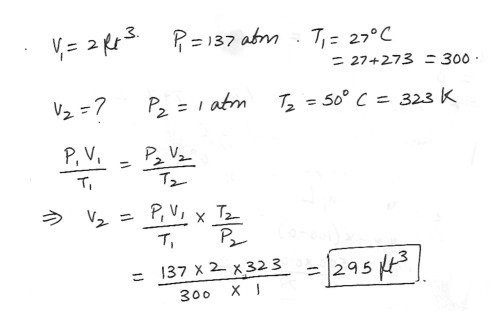 V₁ = 2 ft³. P₁ = 137 atm . T₁ = 27°C
= 27+273 = 300.
V₂ = ? P₂ = 1 atm T₂ = 50° C = 323 K
P₁V₁/T₁ = P₂V₂/T₂
⇒ V₂ = P₁V₁/T₁ × T₂/P₂
= 137 × 2 × 323 / 300 × 1 = 295 ft³.